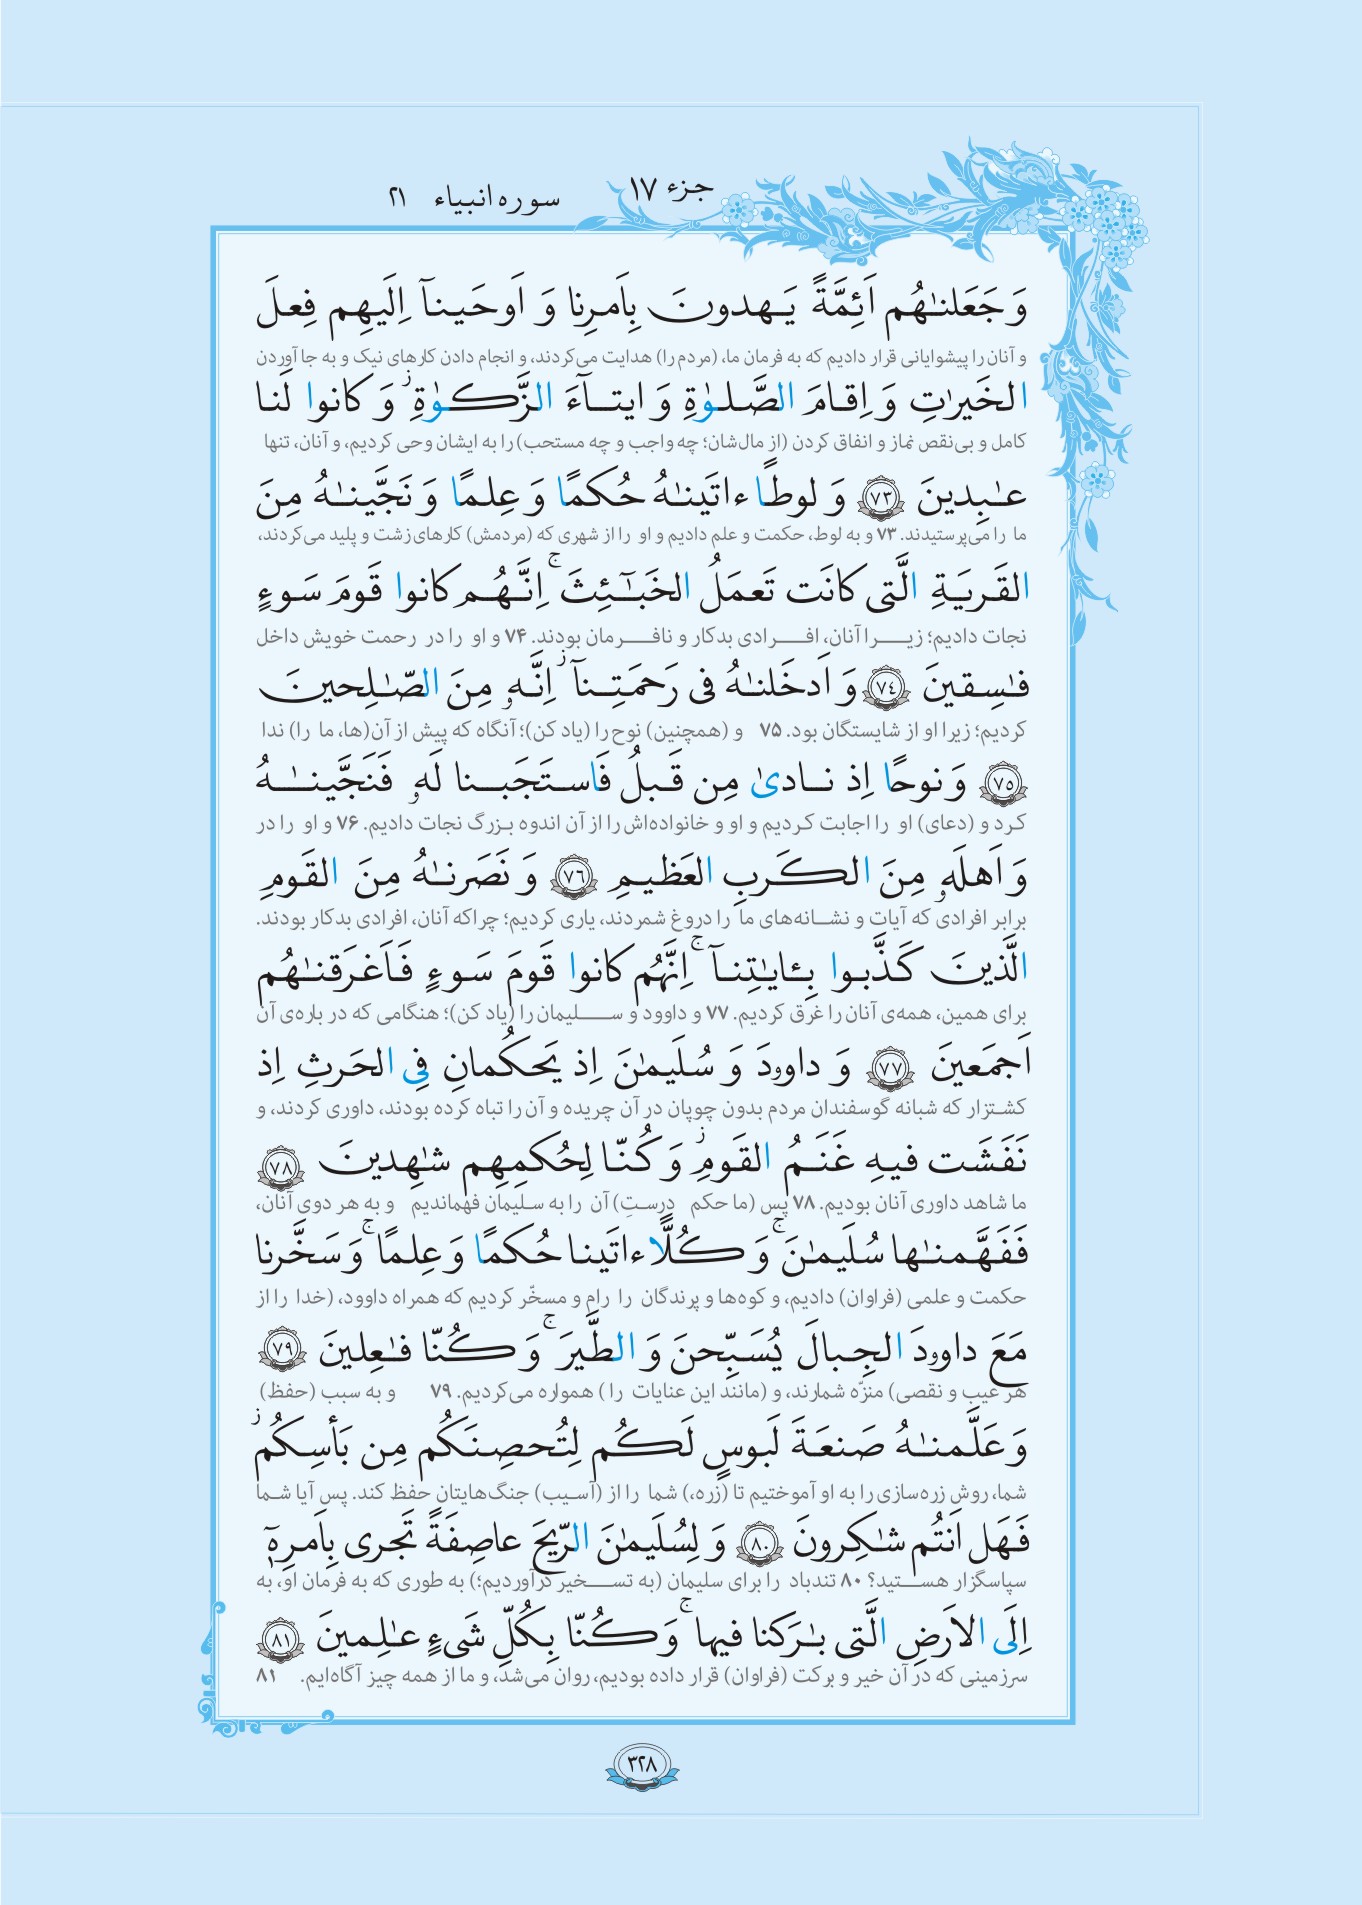 جزء ۱۷
سوره انبیاء ۲۱
وَ جَعَلنـٰهُم اَئِمَّةً یَـهدونَ بِاَمرِنا وَ اَوحَینـآ اِلَیهِم فِعلَ
و آنان را پیشوایانی قرار دادیم که به فرمان ما، (مردم را) هدایت می‌کردند، و انجام دادن کارهای نیک و به جا آوردن
الخَیرٰتِ وَ اِقامَ الصَّلوٰةِ وَ ایتـآءَ الزَّکوٰةِۖ وَ کانوا لَنا
کامل و بی‌نقص نماز و انفاق کردن (از مال‌شان؛ چه واجب و چه مستحب) را به ایشان وحی کردیم، و آنان، تنها
عـٰبِدینَ ﴿٧٣﴾ وَ لوطًا ءاتَینـٰهُ حُکمًا وَ عِلمًا وَ نَجَّینـٰهُ مِنَ
ما را می‌پرستیدند. ۷۳ و به لوط، حکمت و علم دادیم و او را از شهری که (مردمش) کارهای زشت و پلید می‌کردند،
القَریَةِ الَّتی کانَت تَعمَلُ الخَبـٰٓئِثَۚ اِنَّهُم کانوا قَومَ سَوءٍ
نجات دادیم؛ زیرا آنان، افرادی بدکار و نافرمان بودند. ۷۴ و او را در رحمت خویش داخل
فـٰسِقینَ ﴿٧٤﴾ وَ اَدخَلنـٰهُ فی رَحمَتِنـآۖ اِنَّهو مِنَ الصّـٰلِحینَ
کردیم؛ زیرا او از شایستگان بود. ۷۵ و (همچنین) نوح را (یاد کن)؛ آنگاه که پیش از آن(ها، ما را) ندا
﴿٧٥﴾ وَ نوحًا اِذ نـادىٰ مِن قَـبلُ فَاستَجَبـنا لَهو فَنَجَّینـٰهُ
کرد و (دعای) او را اجابت کردیم و او و خانواده‌اش را از آن اندوه بزرگ نجات دادیم. ۷۶ و او را در
وَ اَهلَهو مِنَ الکَربِ العَظیمِ ﴿٧٦﴾ وَ نَصَرنـٰهُ مِنَ القَومِ
برابر افرادی که آیات و نشانه‌های ما را دروغ شمردند، یاری کردیم؛ چراکه آنان، افرادی بدکار بودند.
الَّذینَ کَذَّبـوا بِـٔایـٰتِنـآۚ اِنَّهُم کانوا قَومَ سَوءٍ فَـاَغرَقنـٰهُم
برای همین، همه‌ی آنان را غرق کردیم. ۷۷ و داوود و سلیمان را (یاد کن)؛ هنگامی که در باره‌ی آن
اَجمَعینَ ﴿٧٧﴾ وَ داوودَ وَ سُلَیمـٰنَ اِذ یَحکُمانِ فِی الحَرثِ اِذ
کشتزار که شبانه گوسفندان مردم بدون چوپان در آن چریده و آن را تباه کرده بودند، داوری کردند، و
نَفَشَت فیهِ غَنَمُ القَومِۖ وَ کُنّا لِحُکمِهِم شـٰهِدینَ ﴿٧٨﴾
ما شاهد داوری آنان بودیم. ۷۸ پس (ما حکم درستِ) آن را به سلیمان فهماندیم و به هر دوی آنان،
فَفَهَّمنـٰها سُلَیمـٰنَۚ وَ کُلًّا ءاتَینا حُکمًا وَ عِلمًاۚ وَ سَخَّرنا
حکمت و علمی (فراوان) دادیم، و کوه‌ها و پرندگان را رام و مسخّر کردیم که همراه داوود، (خدا را از
مَعَ داوودَ الجِبالَ یُسَبِّحنَ وَ الطَّیرَۚ وَ کُنّا فـٰعِلینَ ﴿٧٩﴾
هر عیب و نقصی) منزّه شمارند، و (مانند این عنایات را) همواره می‌کردیم. ۷۹ و به سبب (حفظ)
وَ عَلَّمنـٰهُ صَنعَةَ لَبوسٍ لَکُم لِتُحصِنَکُم مِن بَأسِکُمۖ
شما، روش زره‌سازی را به او آموختیم تا (زره،) شما را از (آسیب) جنگ‌هایتان حفظ کند. پس آیا شما
فَهَل اَنتُم شـٰکِرونَ ﴿٨٠﴾ وَ لِسُلَیمـٰنَ الرّیحَ عاصِفَةً تَجری بِاَمرِهٖٓ
سپاسگزار هستید؟ ۸۰ تندباد را برای سلیمان (به تسخیر درآوردیم؛) به طوری که به فرمان او، به
اِلَی الاَرضِ الَّتی بـٰرَکنا فیهاۚ وَ کُنّا بِکُلِّ شَیءٍ عـٰلِمینَ ﴿٨١﴾
سرزمینی که در آن خیر و برکت (فراوان) قرار داده بودیم، روان می‌شد، و ما از همه چیز آگاه‌ایم. ۸۱
۳۲۸